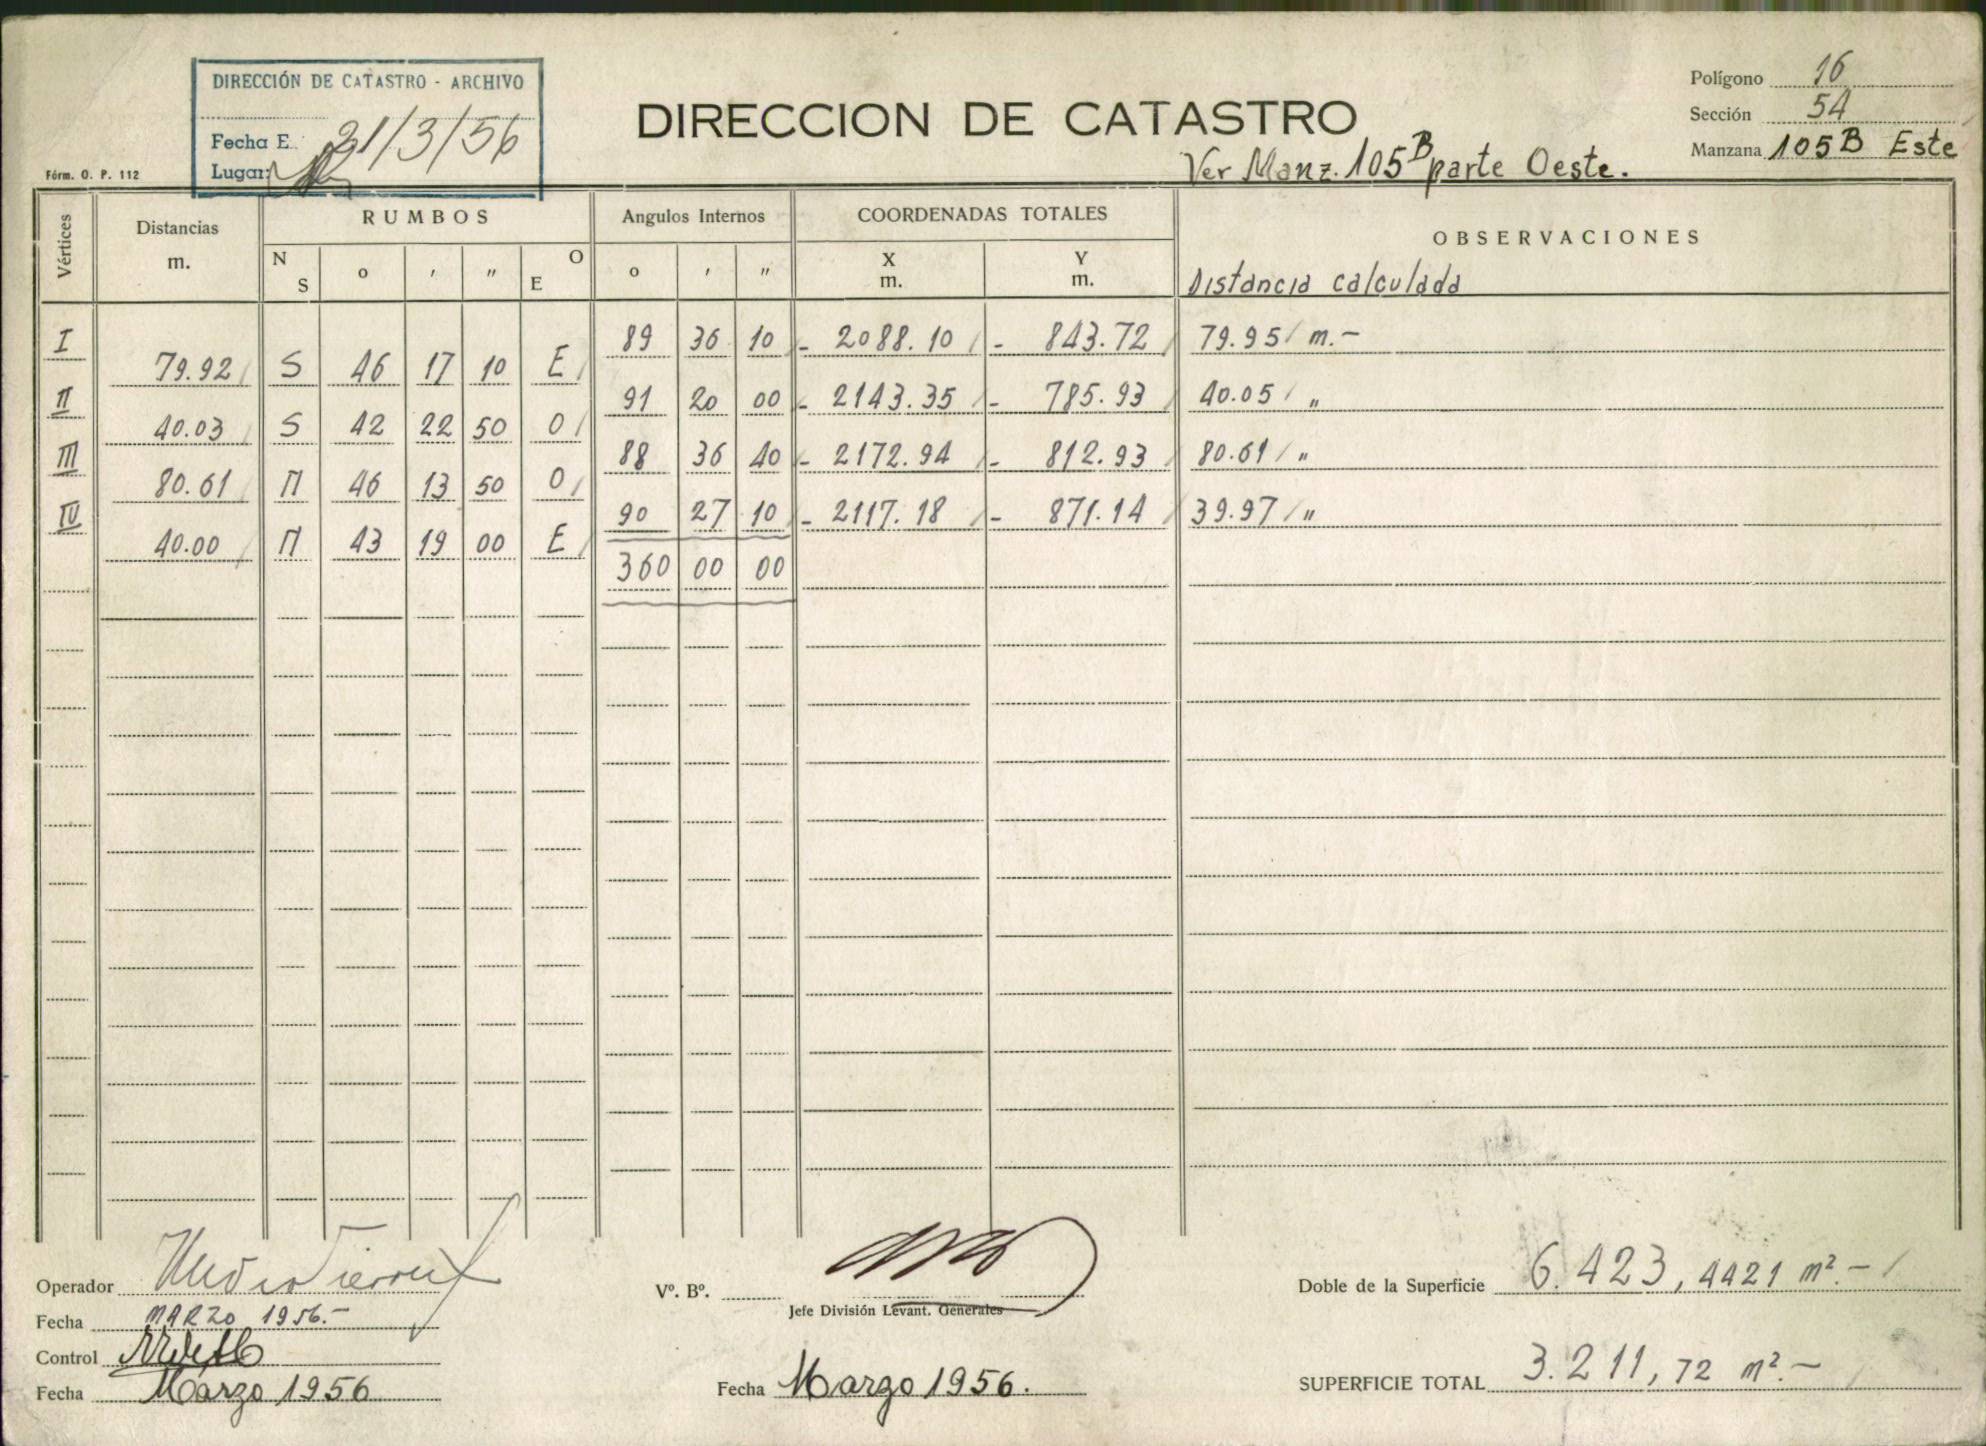 DIRECCIÓN DE CATASTRO - ARCHIVO
Fecha E. 21/3/56
Lugar:
Fórm. O. P. 112
DIRECCION DE CATASTRO
Ver Manz. 105B parte Oeste.
Polígono 16
Sección 54
Manzana 105B Este
Vértices Distancias m. RUMBOS Angulos Internos COORDENADAS TOTALES OBSERVACIONES
N S o ' " O E o ' " X m. Y m. Distancia calculada
I 89 36 10 - 2088.10 - 843.72 79.95 m.-
79.92 S 46 17 10 E
II 91 20 00 - 2143.35 - 785.93 40.05 "
40.03 S 42 22 50 O
III 88 36 40 - 2172.94 - 812.93 80.61 "
80.61 N 46 13 50 O
IV 90 27 10 - 2117.18 - 871.14 39.97 "
40.00 N 43 19 00 E
360 00 00
Operador
Fecha MARZO 1956.-
Control
Fecha Marzo 1956
Vº. Bº.
Jefe División Levant. Generales
Fecha Marzo 1956.
Doble de la Superficie 6.423,4421 m².-
SUPERFICIE TOTAL 3.211,72 m².-